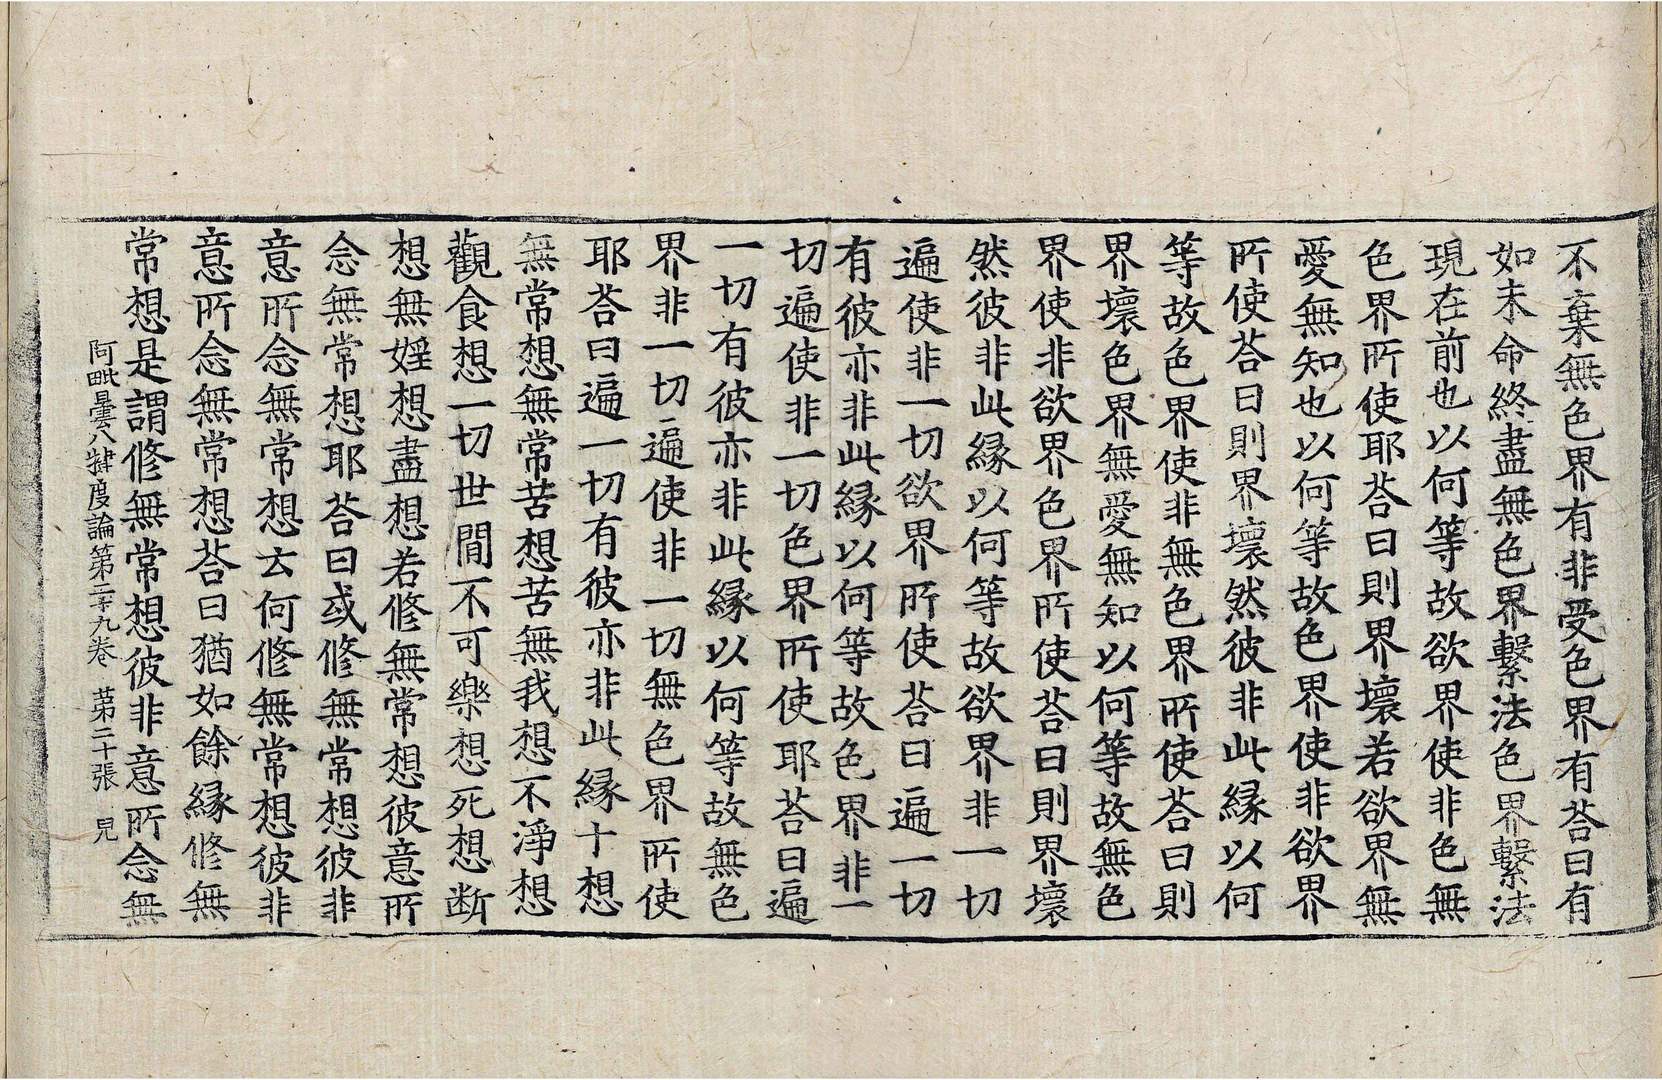 不棄無色界有非受色界有荅曰有
如未命終盡無色界繫法色界繫法
現在前也以何等故欲界使非色無
色界所使耶荅曰則界壞若欲界無
愛無知也以何等故色界使非欲界
所使荅曰則界壞然彼非此緣以何
等故色界使非無色界所使荅曰則
界壞色界無愛無知以何等故無色
界使非欲界色界所使荅曰則界壞
然彼非此緣以何等故欲界非一切
遍使非一切欲界所使荅曰遍一切
有彼亦非此緣以何等故色界非一
切遍使非一切色界所使耶荅曰遍
一切有彼亦非此緣以何等故無色
界非一切遍使非一切無色界所使
耶荅曰遍一切有彼亦非此緣十想
無常想無常苦想苦無我想不淨想
觀食想一切世間不可樂想死想断
想無婬想盡想若修無常想彼意所
念無常想耶荅曰或修無常想彼非
意所念無常想云何修無常想彼非
意所念無常想荅曰猶如餘緣修無
常想是謂修無常想彼非意所念無
阿毗曇八犍度論第二十九卷 第二十張 見